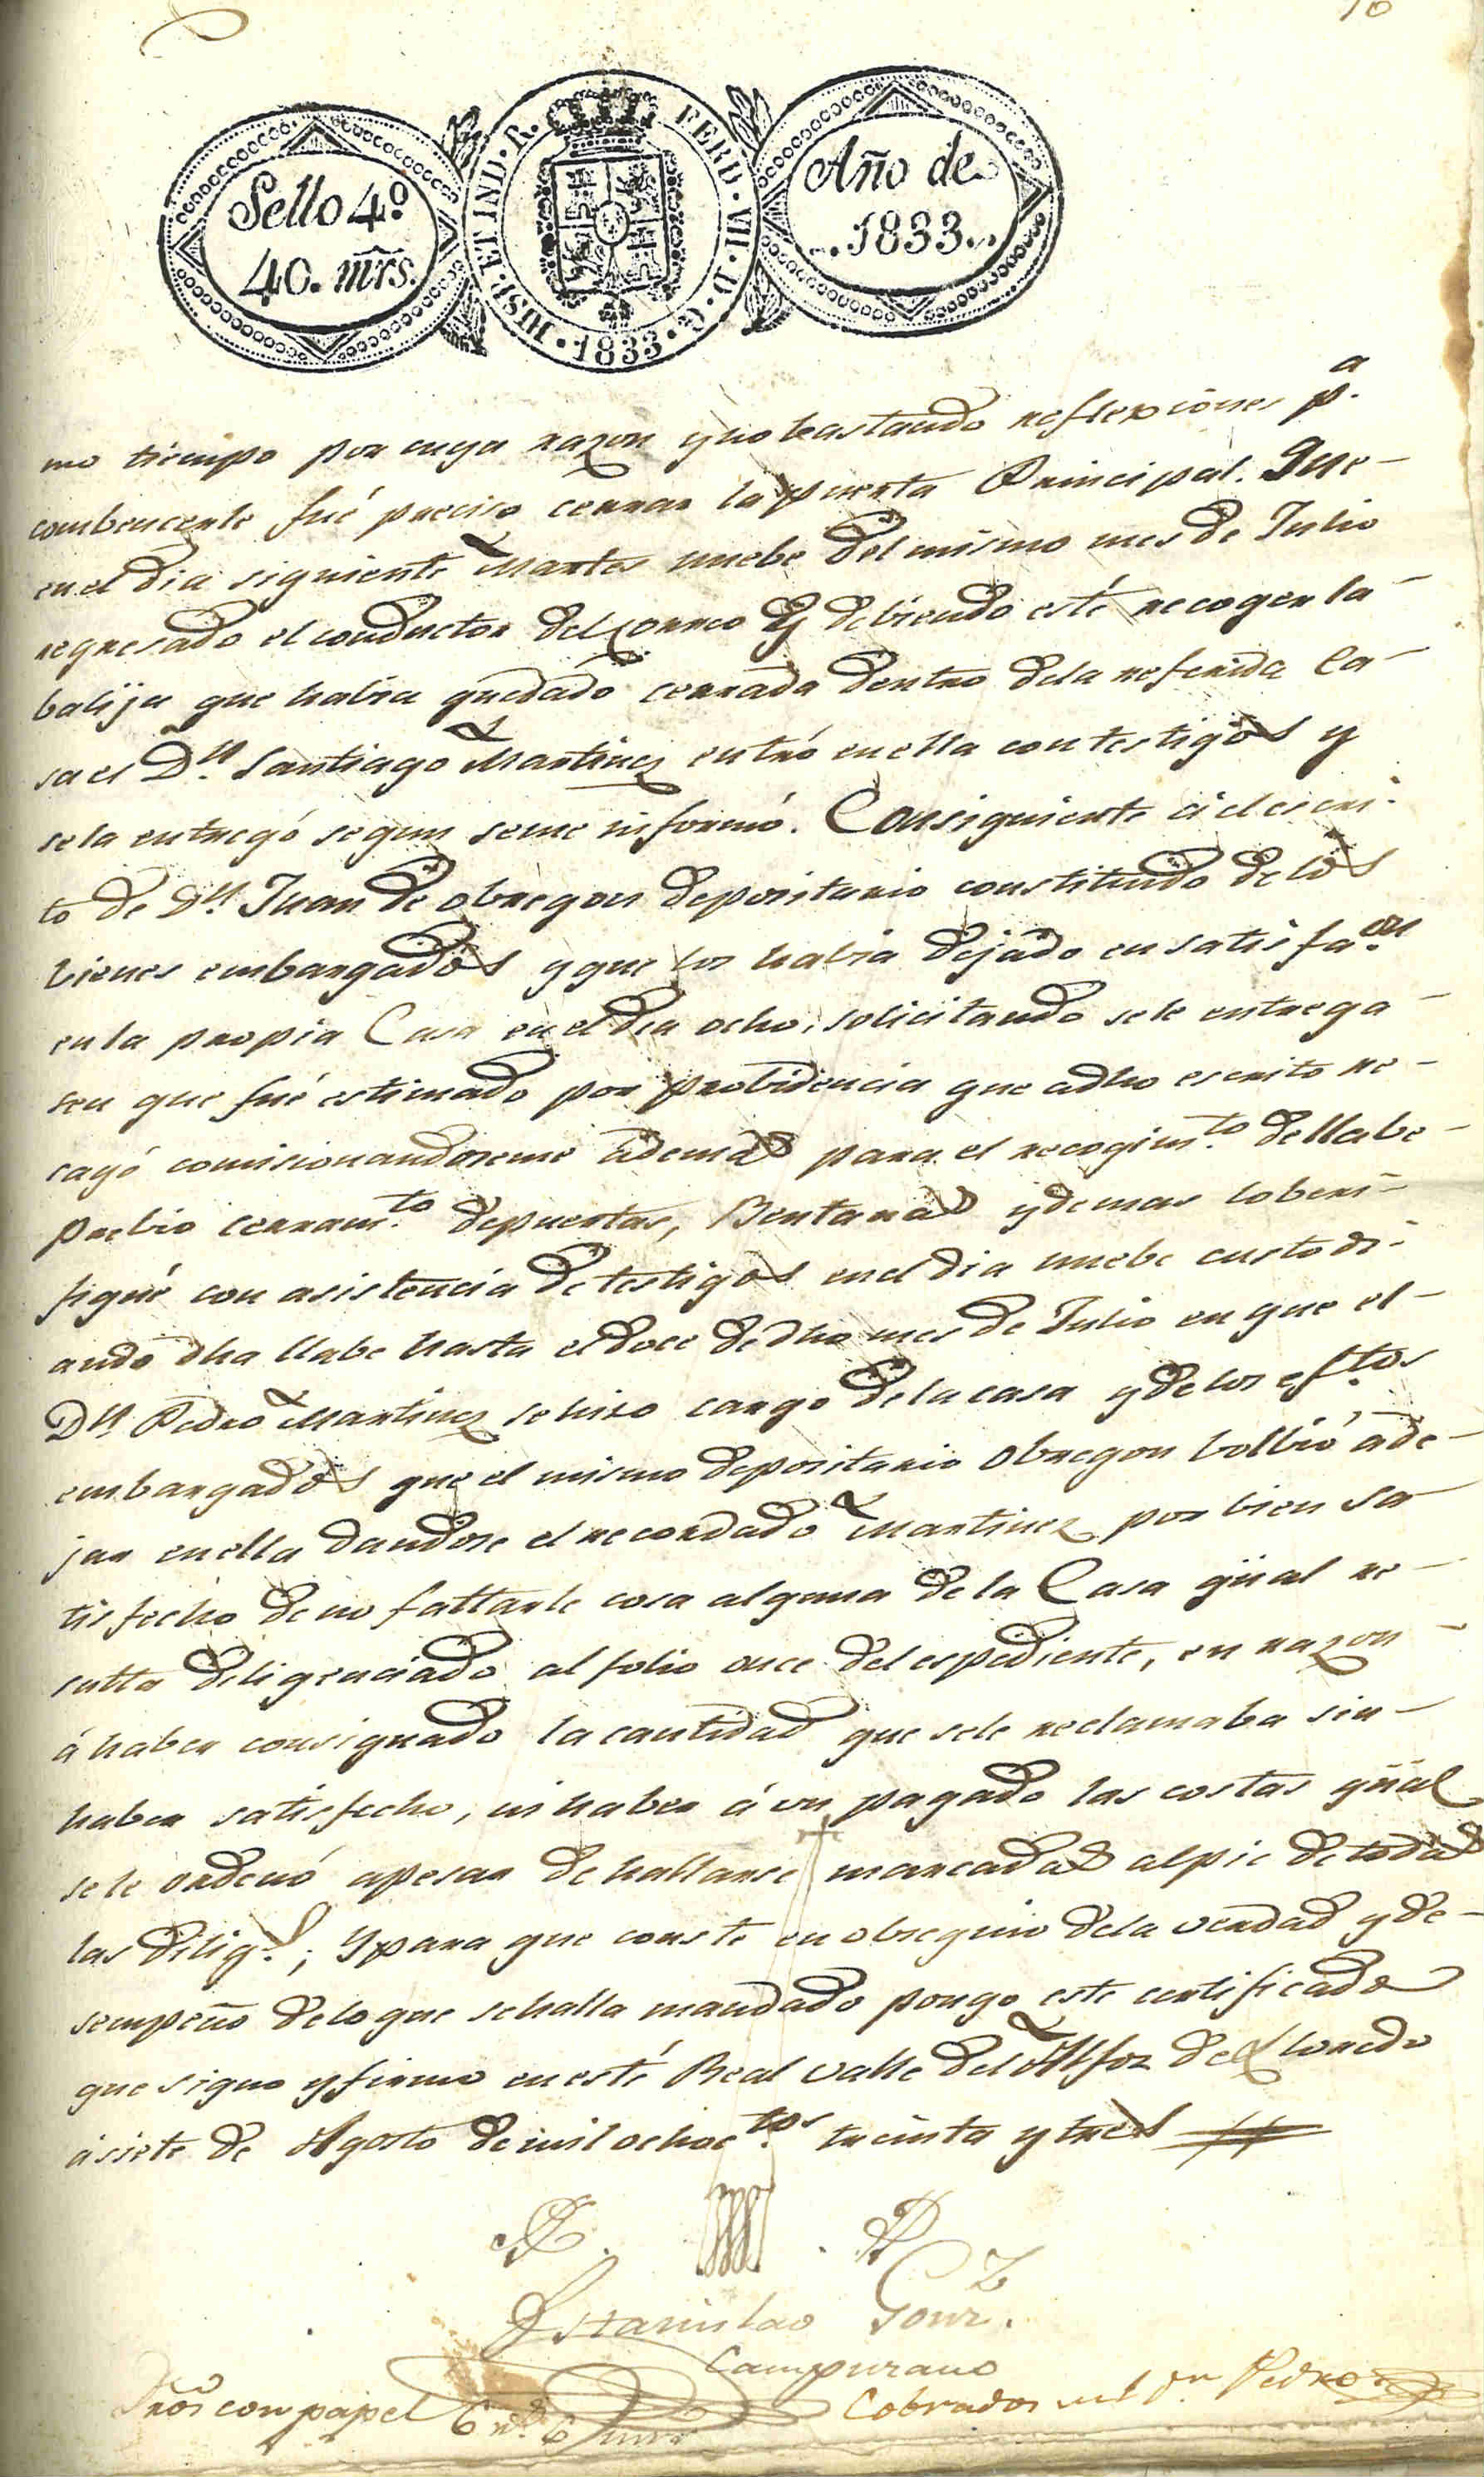 10
Sello 4º
40. mrs.
HISP. ET IND. R. FERD. VII. D. G.
1833
Año de
1833
mo tiempo por cuya razon y no bastando reflexiones p.ª
combencerle fué preciso cerrar la puerta Principal. Que
en el dia siguiente Martes nuebe del mismo mes de Julio
regresado el conductor del correo y debiendo esté recoger la
balija que habia quedado cerrada dentro dela referida Ca-
sa el Dn. Santiago Martinez entró en ella con testigos y
se la entregó segun seme informó. Consiguiente á el escri-
to de Dn. Juan de Obregon depositario constituido de los
bienes embargados y que los habia dejado en satisfa.on
en la propia Casa en el dia ocho, solicitando sele entrega-
sen que fué estimado por probidencia que a dho escrito re-
cayó comisionandoseme ademas para el recogim.to de llabe
prebio cerram.to de puertas, Bentanas y demas lo beri-
fiqué con asistencia de testigos en el dia nuebe custodi-
ando dha llabe hasta el doce de dho mes de Julio en que el
Dn. Pedro Martinez se hizo cargo dela casa y de los ef.tos
embargados que el mismo depositario Obregon bolbió ade-
jar en ella dandose el recordado Martinez por bien sa-
tisfecho de no faltarle cosa alguna de la Casa qüal re-
sulta diligenciado al folio once del espediente, en razon
á haber consignado la cantidad que sele reclamaba sin
haber satisfecho, ni haber á un pagado las costas qüal
se le ordenó apesar de hallarse marcadas al pie de todas
las dilig.s; Y para que conste en obsequio dela verdad y de-
sempeño delo que se halla mandado pongo este certificado
que signo y firmo en esté Real valle del Alfoz de Lloredo
á siete de Agosto de mil ochoc.tos treinta y tres
Estanislao Gonz.
Campuzano
Dros con papel
Cobrados del Dn Pedro